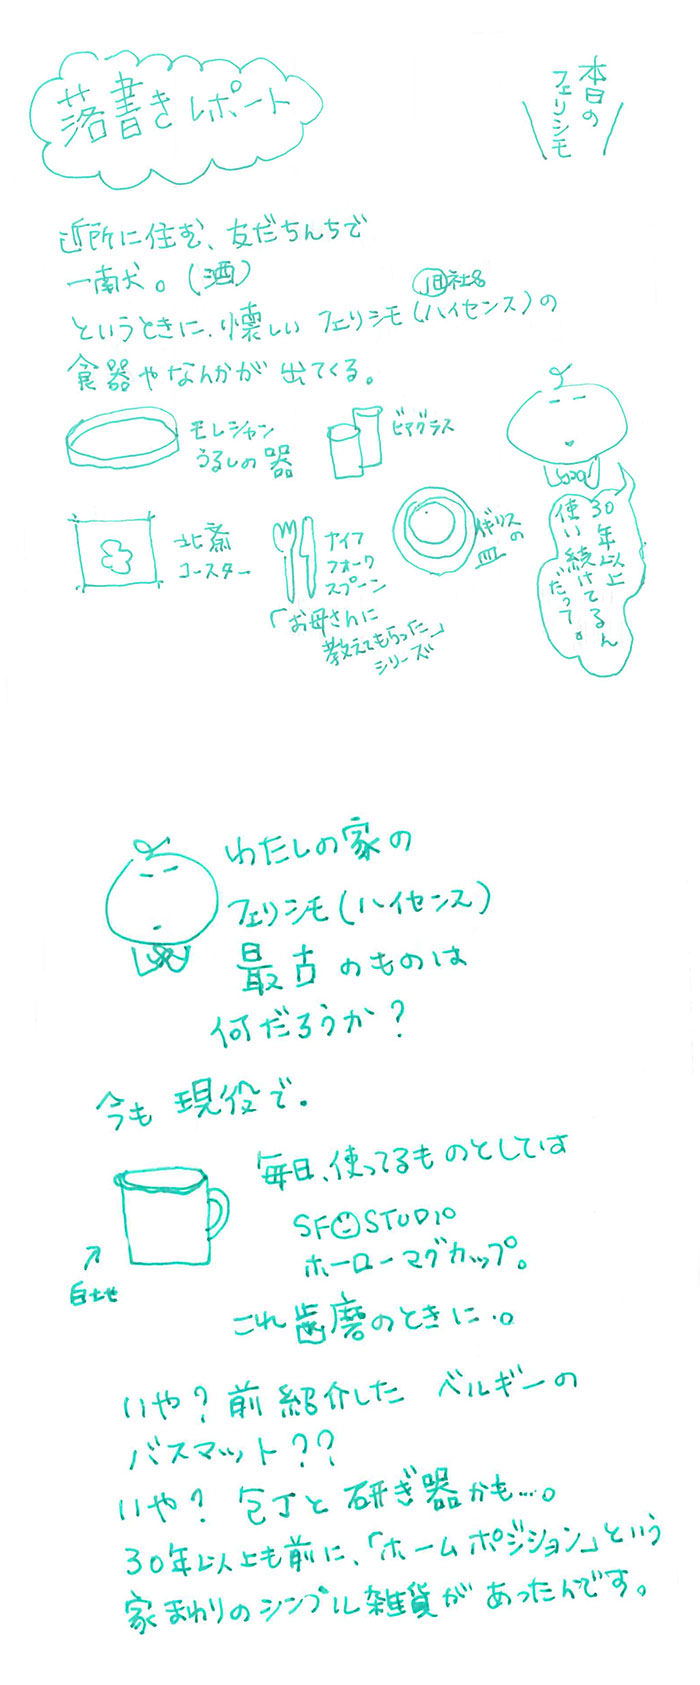 落書きレポート
本日の
フェリシモ
近所に住む、友だちんちで
一献。(酒)
というときに、懐しい フェリシモ(ハイセンス)の
旧社名
食器やなんかが 出てくる。
モレシャン
うるしの器
ビアグラス
北斎
コースター
ナイフ
フォーク
スプーン
「お母さんに
教えてもらった」
シリーズ
イギリス
の
皿
30年以上
使い続けてるん
だって。
わたしの家の
フェリシモ(ハイセンス)
最古のものは
何だろうか?
今も 現役で。
毎日、使ってるものとしては
SF☺STUDIO
ホーローマグカップ。
白土せ
これ歯磨のときに・。
いや? 前 紹介した ベルギーの
バスマット??
いや? 包丁と 研ぎ器かも…。
30年以上も前に、「ホームポジション」という
家まわりのシンプル雑貨が あったんです。